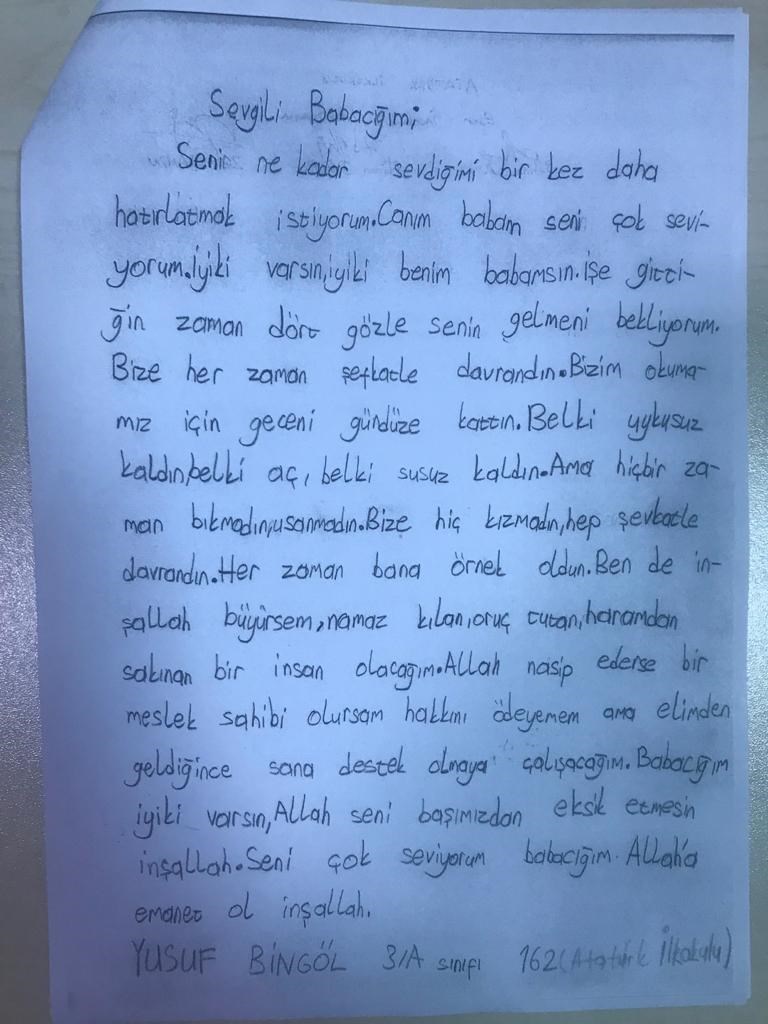 Sevgili Babacığım;
Seni ne kadar sevdiğimi bir kez daha
hatırlatmak istiyorum.Canım babam seni çok sevi-
yorum.İyiki varsın,iyiki benim babamsın.işe gitti-
ğin zaman dört gözle senin gelmeni bekliyorum.
Bize her zaman şefkatle davrandın.Bizim okuma-
mız için geceni gündüze kattın.Belki uykusuz
kaldın,belki aç, belki susuz kaldın.Ama hiçbir za-
man bıkmadın,usanmadın.Bize hiç kızmadın,hep şevkatle
davrandın.Her zaman bana örnek oldun.Ben de in-
şallah büyürsem,namaz kılan,oruç tutan,haramdan
sakınan bir insan olacağım.Allah nasip ederse bir
meslek sahibi olursam hakkını ödeyemem ama elimden
geldiğince sana destek olmaya çalışacağım.Babacığım
iyiki varsın,Allah seni başımızdan eksik etmesin
inşallah.Seni çok seviyorum babacığım. Allah'a
emanet ol inşallah.
YUSUF BİNGÖL 3/A sınıfı 162(Atatürk İlkokulu)